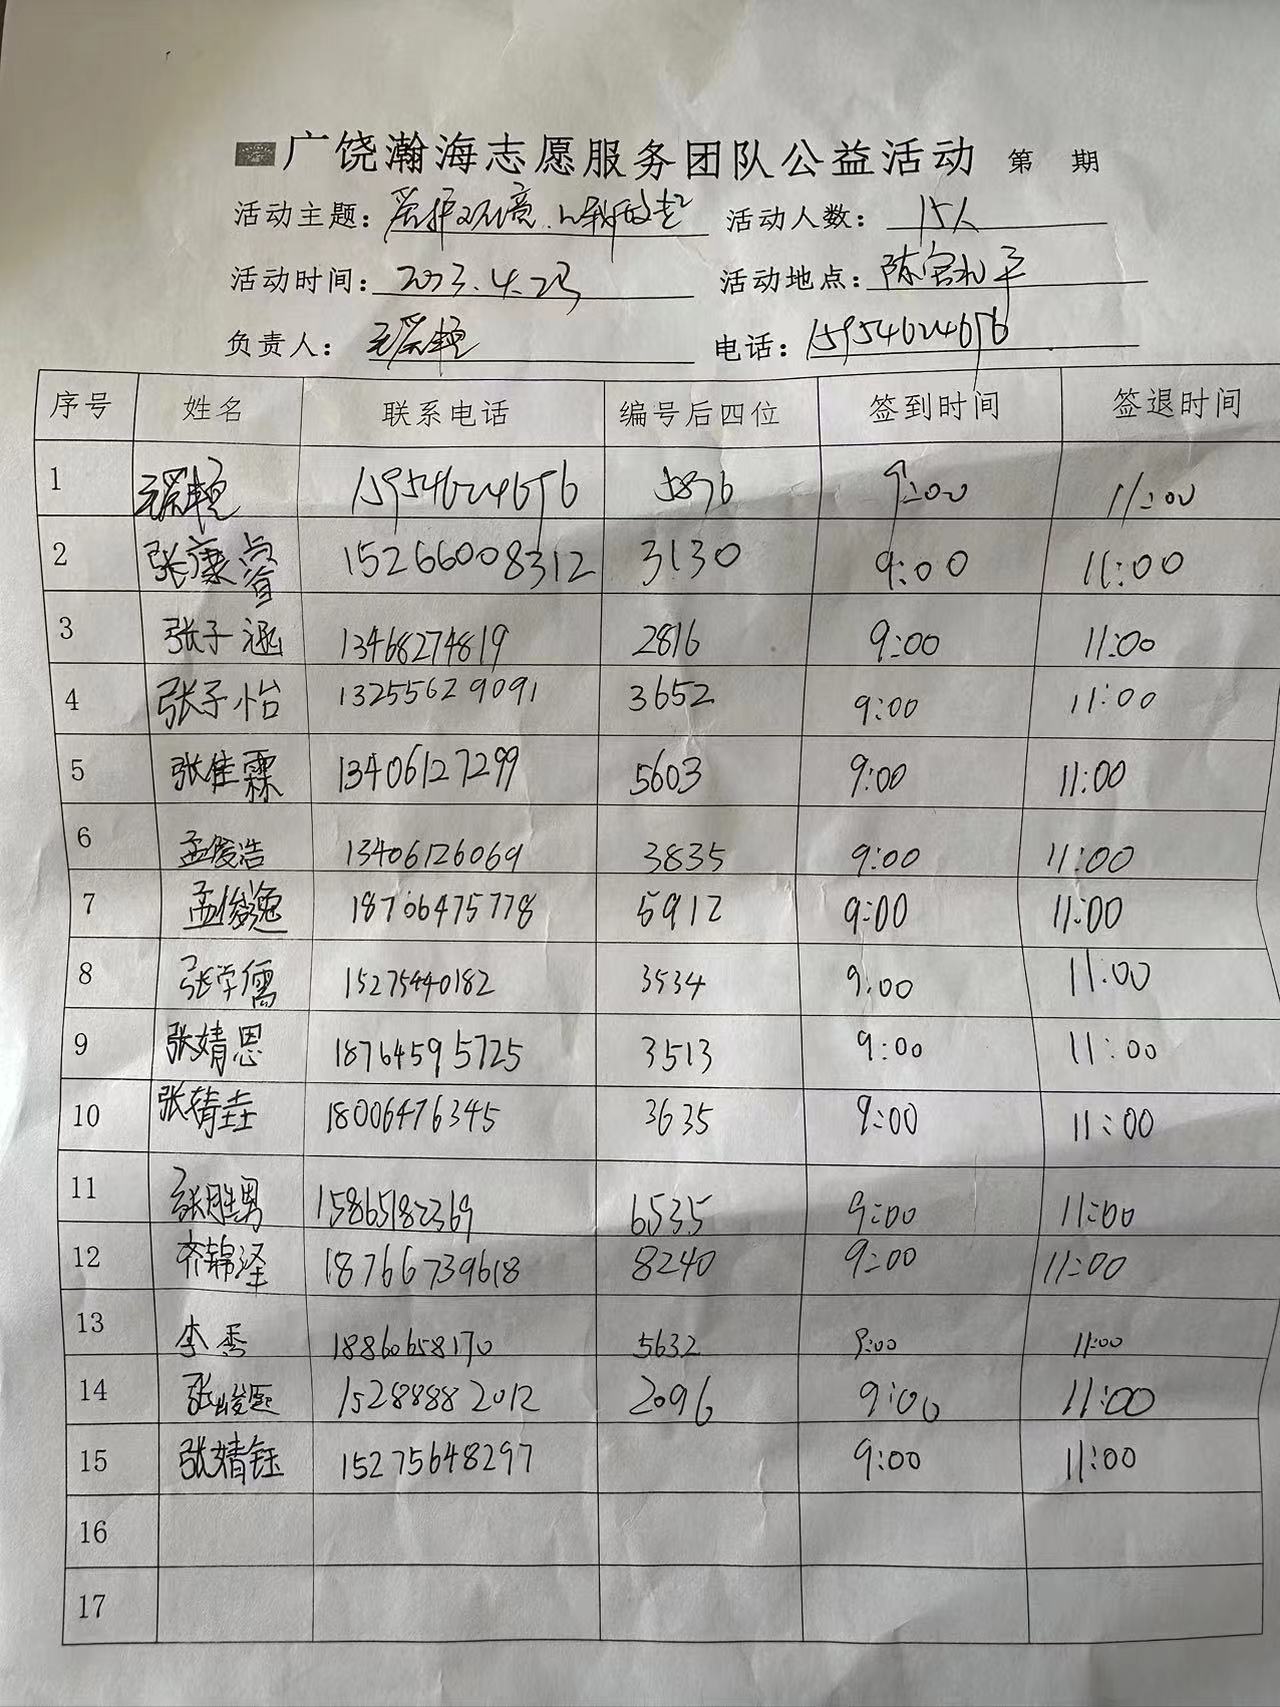 广饶瀚海志愿服务团队公益活动 第 期
活动主题：爱护环境.从我做起 活动人数：15人
活动时间：2023.4.23 活动地点：陈官
负责人： 电话：15954624696
序号 姓名 联系电话 编号后四位 签到时间 签退时间
1 15954624696 5876 9:00 11:00
2 张康睿 15266008312 3130 9:00 11:00
3 张子涵 13468274819 2816 9:00 11:00
4 张子怡 13255629091 3652 9:00 11:00
5 张佳霖 13406127299 5603 9:00 11:00
6 孟俊浩 13406126069 3835 9:00 11:00
7 孟俊逸 18706475778 5912 9:00 11:00
8 张学儒 15275440182 3534 9:00 11:00
9 张婧恩 18764595725 3513 9:00 11:00
10 张婧垚 18006476345 3635 9:00 11:00
11 张胜男 15865182369 6535 9:00 11:00
12 齐锦泽 18766739618 8240 9:00 11:00
13 李秀 18860658170 5632 9:00 11:00
14 张峻熙 15288882012 2096 9:00 11:00
15 张婧钰 15275648297 9:00 11:00
16
17